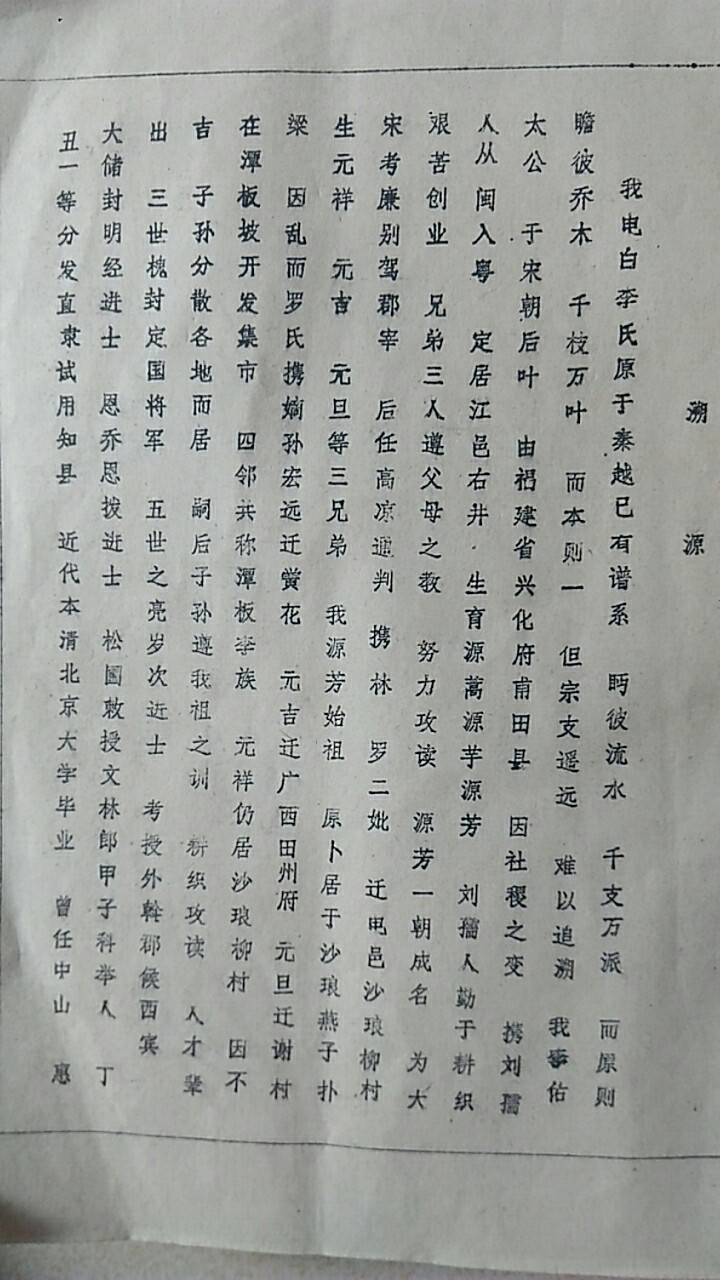 溯 源
我电白李氏原于秦越已有谱系 眄彼流水 千支万派 而原则
瞻彼乔木 千枝万叶 而本则一 但宗支遥远 难以追溯 我 佑
太公 于宋朝后叶 由福建省兴化府甫田县 因社稷之变 携刘孺
人从闽入粤 定居江邑右井 . 生育源蒿源芋源芳 刘孺人勤于耕织
艰苦创业 兄弟三人遵父母之教 努力攻读 源芳一朝成名 为大
宋考廉别驾郡宰 后任高凉通判 携林 罗二妣 迁电邑沙琅柳村
生元祥 元吉 元旦等三兄弟 我源芳始祖 原卜居于沙琅燕子扑
梁 因乱而罗氏携嫡孙宏远迁黉花 元吉迁广西田州府 元旦迁谢村
在潭板坡开发集市 四邻共称潭板李族 元祥仍居沙琅柳村 因不
吉 子孙分散各地而居 嗣后子孙遵我祖之训 耕织攻读 人才辈
出 三世槐封定国将军 五世之亮岁次进士 考授外翰郡候西宾
大储封明经进士 恩乔恩拨进士 松国敕授文林郎甲子科举人 丁
丑一等分发直隶试用知县 近代本清北京大学毕业 曾任中山 惠